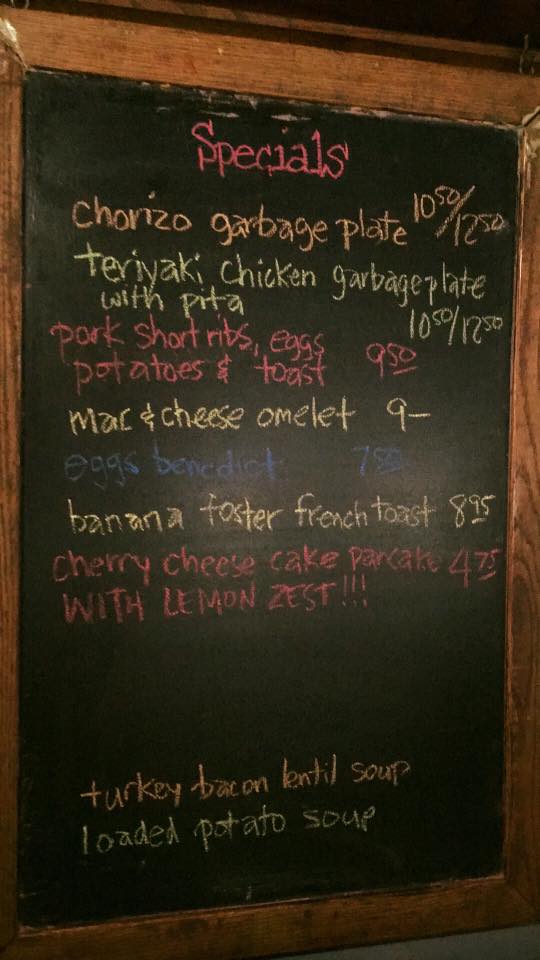 Specials
chorizo garbage plate 10⁵⁰/12⁵⁰
teriyaki chicken garbage plate
with pita 10⁵⁰/12⁵⁰
pork short ribs, eggs
potatoes & toast 9⁵⁰
mac & cheese omelet 9–
eggs benedict 7⁵⁰
banana foster french toast 8⁹⁵
cherry cheese cake pancake 4⁷⁵
WITH LEMON ZEST!!!
turkey bacon lentil soup
loaded potato soup